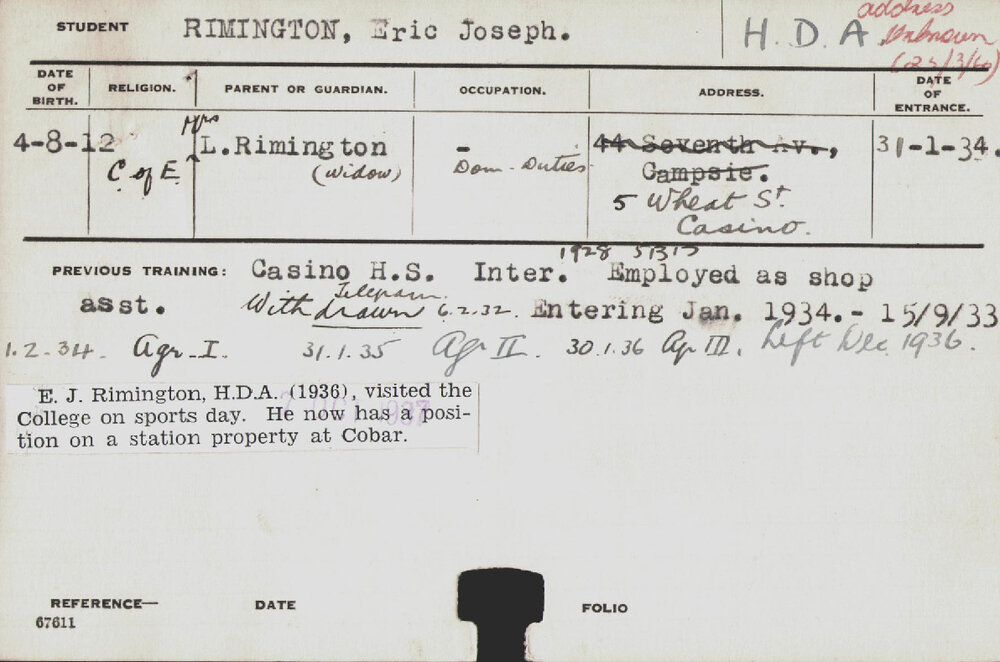 STUDENT RIMINGTON, Eric Joseph. H.D.A address
Unknown
DATE OF BIRTH. RELIGION. PARENT OR GUARDIAN. OCCUPATION. ADDRESS. DATE OF ENTRANCE.
4-8-12 C of E. Mrs L.Rimington - 44 Seventh Av., 31-1-34.
(Widow) Dom. Duties Campsie.
5 Wheat St.
Casino.
1928
PREVIOUS TRAINING: Casino H.S. Inter. Employed as shop
asst. Withdrawn Telegram 6.2.32. Entering Jan. 1934.- 15/9/33
1.2.34. Agr. I. 31.1.35 Agr II. 30.1.36 Agr III. Left Dec 1936.
E. J. Rimington, H.D.A. (1936), visited the
College on sports day. He now has a posi-
tion on a station property at Cobar.
REFERENCE— DATE FOLIO
67611